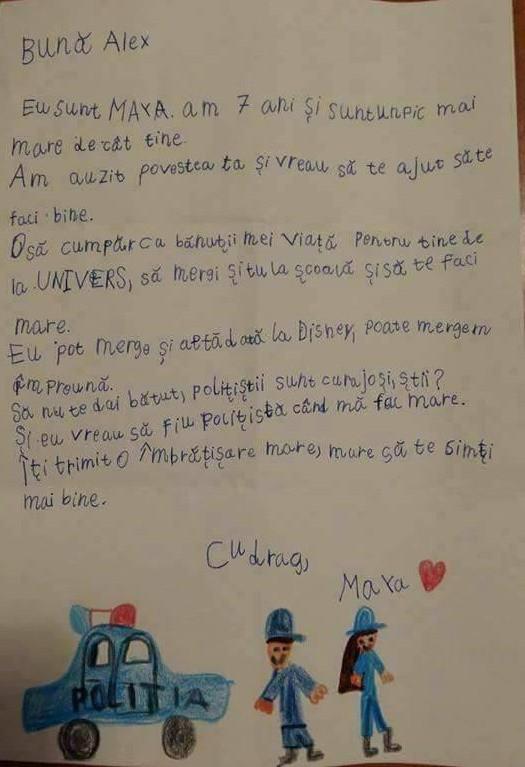 Bună Alex
Eu sunt MAYA. am 7 ani și sunt un pic mai
mare de cât tine.
Am auzit povestea ta și vreau să te ajut să te
faci bine.
O să cumpăr ca bănuții mei viață pentru tine de
la UNIVERS, să mergi și tu la școală și să te faci
mare.
Eu pot merge și altă dată la Disney, poate mergem
împreună.
Să nu te dai bătut, polițiștii sunt curajoși, știi?
Și eu vreau să fiu polițistă când mă fac mare.
Îți trimit o îmbrățișare mare, mare să te simți
mai bine.
Cu drag,
Maya
POLIȚIA